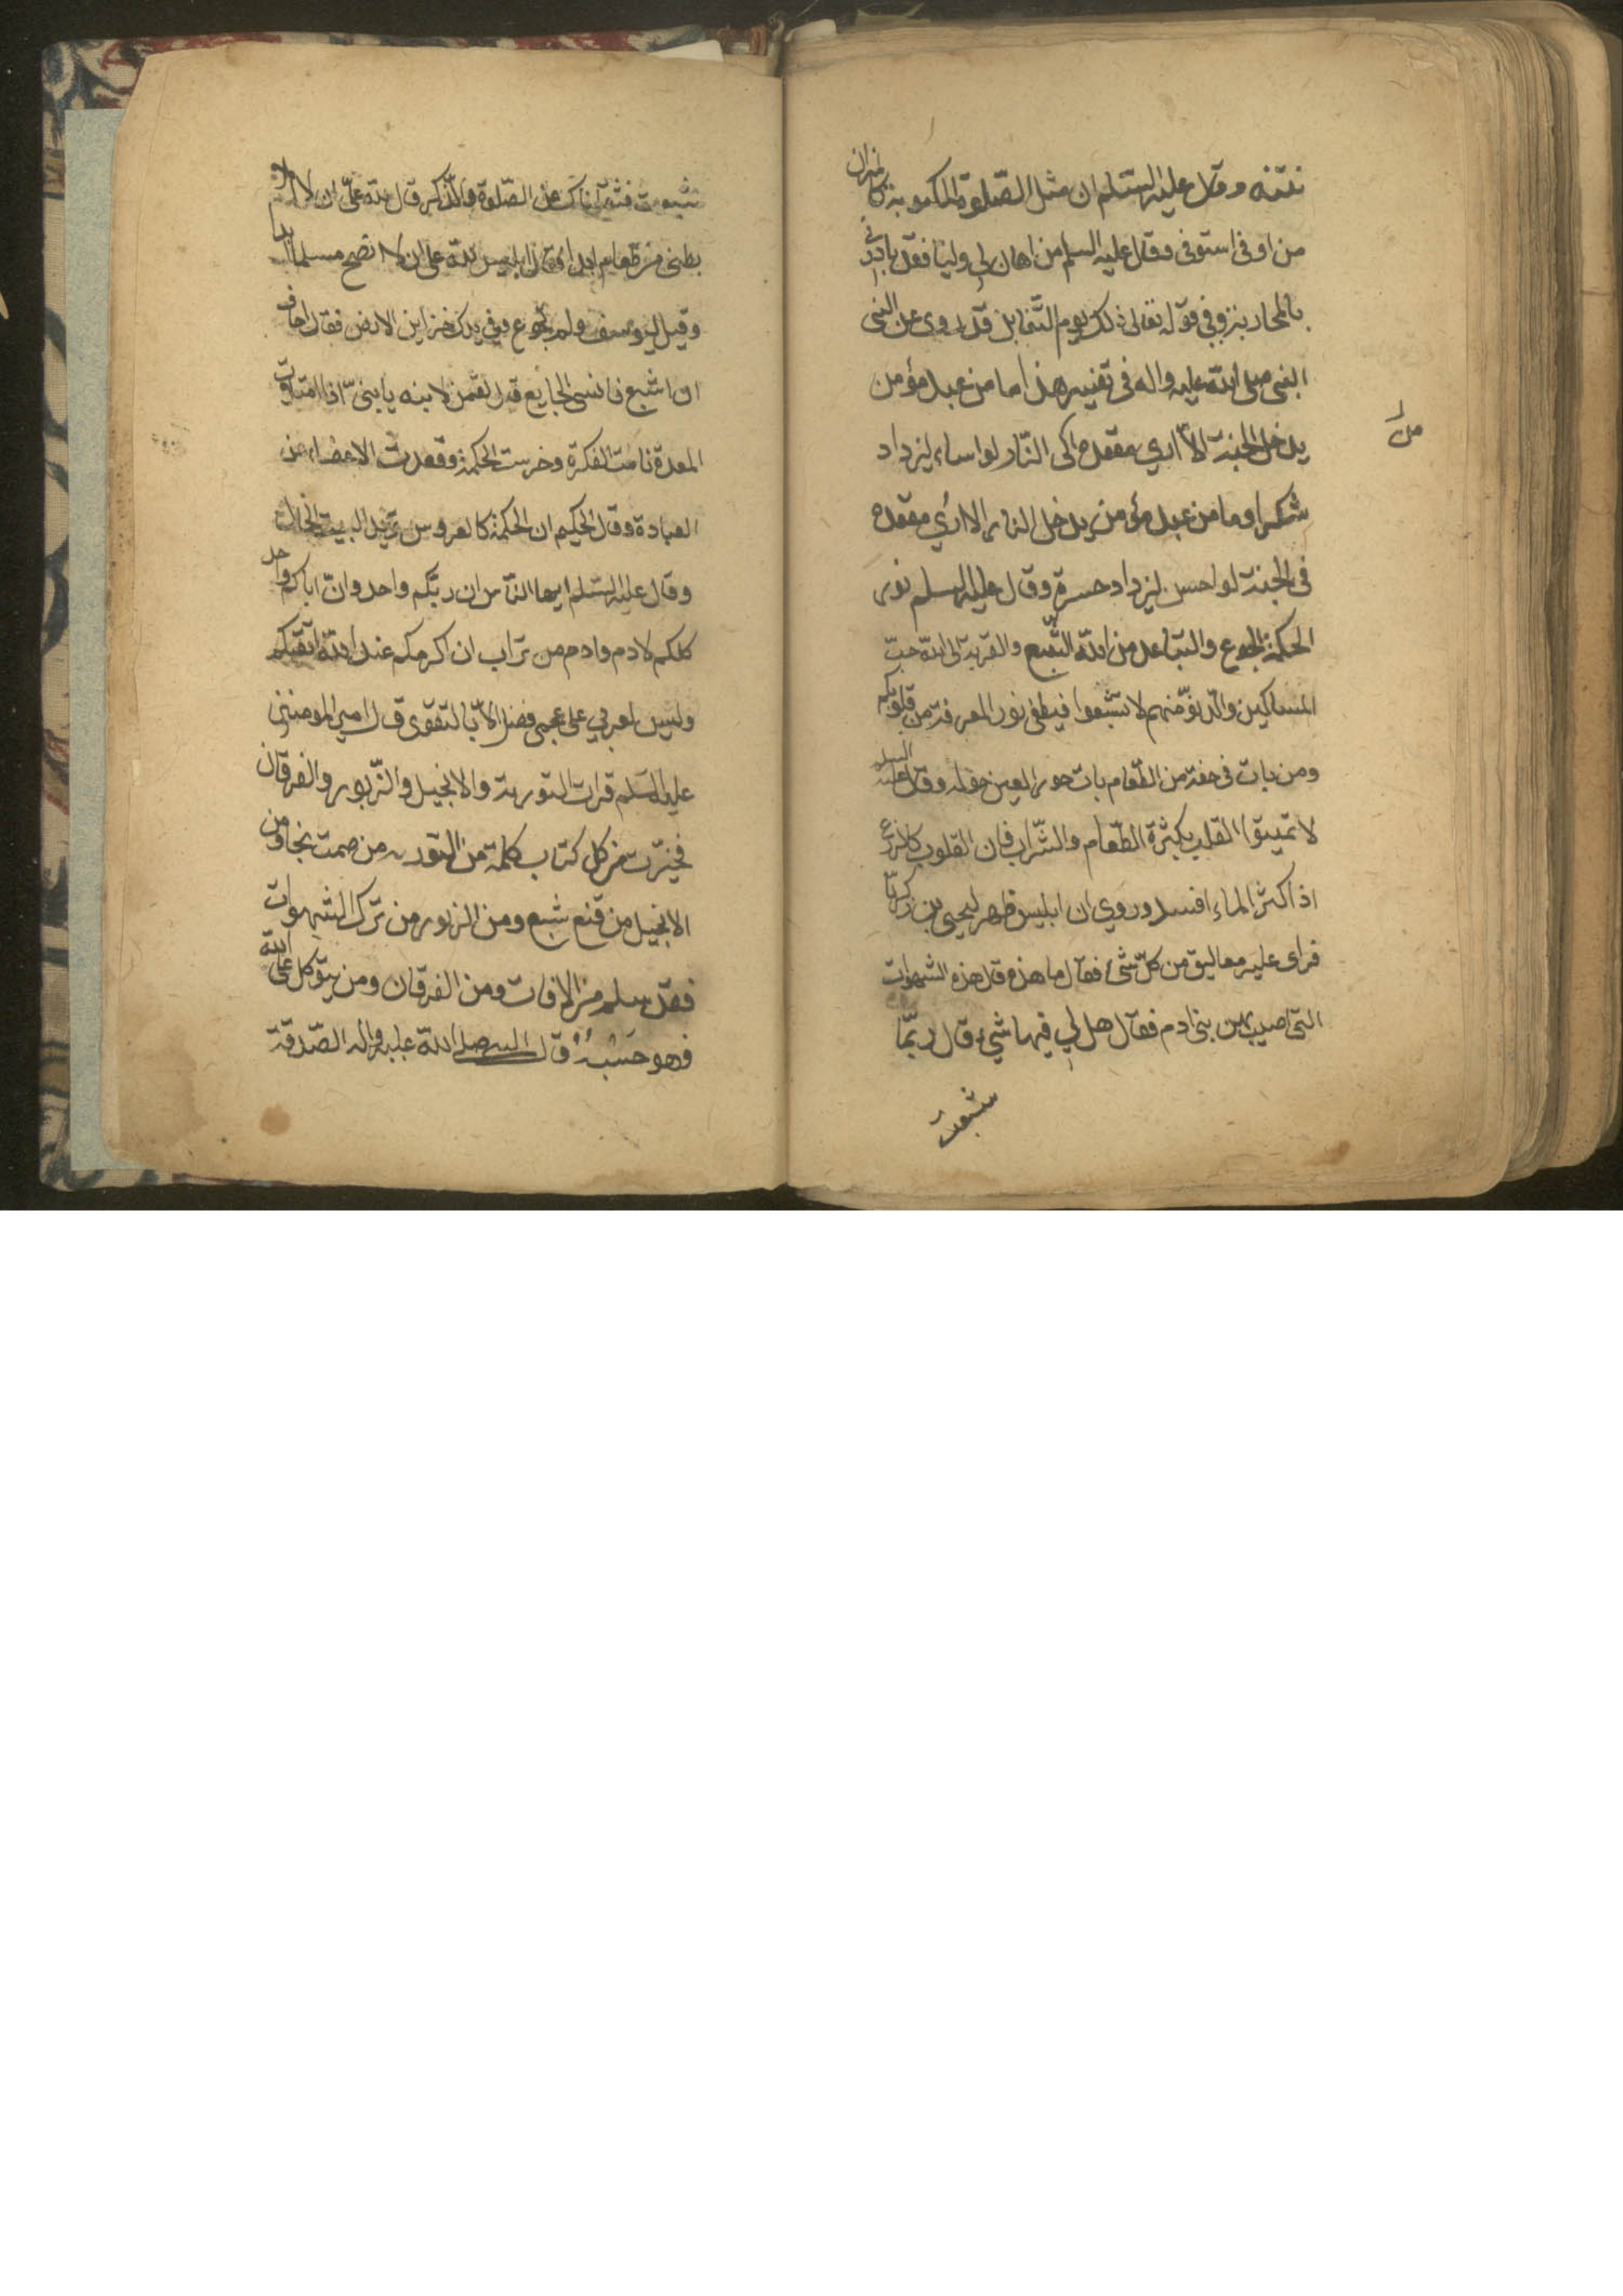 نتنه وقال عليه السلم ان مثل الصّلوة المكتوبة كالميزان
من اوفى استوفى وقال عليه السلم من اهان لي وليّا فقد بادرني
بالمحاربة وفي قوله تعالى ذلك يوم التّغابن قد روى عن النبي
النبي صلى الله عليه واله في تفسيره هذا ما من عبد مؤمن
يدخل الجنة الّا اري مقعده الى النّار لو اساء ليزداد
شكرا وما من عبد مؤمن يدخل النار الا اري مقعده
في الجنة لو احسن ليزداد حسرة وقال عليه السلم نور
الحكمة الجوع والتباعد من الله الشّبع والقربة الى الله حبّ
المساكين والدنوّ منهم لا تشبعوا فيطفى نور المعرفة من قلوبكم
ومن بات في خفة من الطّعام بات حور العين حوله وقال عليه السلم
لا تميتوا القلب بكثرة الطّعام والشّراب فان القلوب كالزرع
اذا كثر الماء افسد وروي ان ابليس ظهر ليحيى بن زكريّا
فراى عليه معاليق من كلّ شئ فقال ما هذه قال هذه الشهوات
التي اصيب بهن بني ادم فقال هل لي فيها شيء قال ربّما
شبعت
شبعت فثقّلناك عن الصّلوة والذّكر قال لله عليّ ان لا املاء
بطني من طعام ابدا وقال ابليس لله علي ان لا انصح مسلما ابدا
وقيل ليوسف ولم تجوع وفي يدك خزاين الارض فقال اخاف
ان اشبع فانسى الجايع قال لقمن لابنه يا بنيّ اذا امتلاءت
المعدة نامت الفكرة وخرست الحكمة وقعدت الاعضاء عن
العبادة وقال الحكيم ان الحكمة كالعروس تريد البيت الخالي
وقال عليه السّلم ايها النّاس ان ربّكم واحد وانّ اباكم واحد
كلكم لادم وادم من تراب ان اكرمكم عند الله اتقيكم
وليس لعربي على عجمي فضل الّا بالتقوى قال امير المومنين
عليه السّلم قرات التورية والانجيل والزّبور والفرقان
فخيّرت من كل كتاب كلمة من التورية من صمت نجا ومن
الانجيل من قنع شبع ومن الزبور من ترك الشهوات
فقد سلم من الافات ومن الفرقان ومن يتوكل على الله
فهو حَسْبُهُ قال النبي صلى الله عليه واله الصّدقة